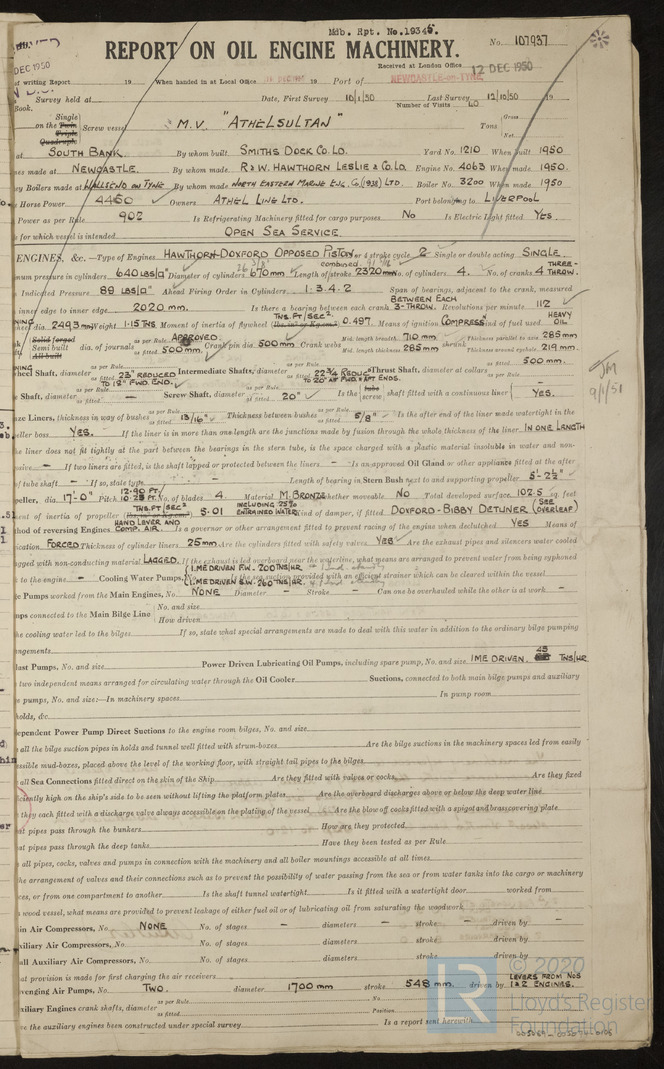 Mdb. Rpt. No. 19345.
REPORT ON OIL ENGINE MACHINERY.
No. 107937
Received at London Office 12 DEC 1950
DEC 1950
of writing Report 19 When handed in at Local Office 19 Port of NEWCASTLE-on-TYNE
Survey held at Date, First Survey 10/1/50 Last Survey 12/10/50 19
Book. Number of Visits 60
on the Single Twin Triple Quadruple Screw vessel M.V. "ATHELSULTAN" Tons Gross Net
at SOUTH BANK By whom built SMITHS DOCK CO. LD. Yard No. 1210 When built 1950
nes made at NEWCASTLE. By whom made R & W. HAWTHORN LESLIE & CO. LD Engine No. 4063 When made 1950.
ey Boilers made at WALLSEND ON TYNE By whom made NORTH EASTERN MARINE ENG. CO. (1938) LTD. Boiler No. 3200 When made 1950
e Horse Power 4450 Owners ATHEL LINE LTD. Port belonging to LIVERPOOL
Power as per Rule 902 Is Refrigerating Machinery fitted for cargo purposes No Is Electric Light fitted YES.
s for which vessel is intended OPEN SEA SERVICE.
ENGINES, &c.—Type of Engines HAWTHORN-DOXFORD OPPOSED PISTON or 4 stroke cycle 2 Single or double acting SINGLE
num pressure in cylinders 640 LBS/□" Diameter of cylinders 670 mm Length of stroke combined 2320 mm No. of cylinders 4. No. of cranks 4 THREE-THROW.
Indicated Pressure 89 LBS/□" Ahead Firing Order in Cylinders 1-3-4-2 Span of bearings, adjacent to the crank, measured
inner edge to inner edge 2020 mm. Is there a bearing between each crank BETWEEN EACH 3-THROW. Revolutions per minute 112
heel dia. 2493 mm Weight 1.15 TNS Moment of inertia of flywheel TNS.FT/SEC². 0.497. Means of ignition COMPRESSn Kind of fuel used HEAVY OIL
Solid forged Semi built All built dia. of journals as per Rule APPROVED as fitted 500 mm. Crank pin dia. 500 mm Crank webs Mid. length breadth 710 mm Mid. length thickness 285 mm shrunk Thickness parallel to axis 285 mm Thickness around eyehole 219 mm.
heel Shaft, diameter as per Rule as fitted 23" REDUCED TO 18" FWD. END. Intermediate Shafts, diameter as per Rule as fitted 22¾" REDUCED TO 20" AT FWD. & AFT ENDS. Thrust Shaft, diameter at collars as per Rule as fitted 500 mm.
e Shaft, diameter as per Rule as fitted — Screw Shaft, diameter as per Rule as fitted 20" Is the tube screw shaft fitted with a continuous liner YES.
nze Liners, thickness in way of bushes as per Rule as fitted 13/16" Thickness between bushes as per Rule as fitted 5/8" Is the after end of the liner made watertight in the
peller boss YES. If the liner is in more than one length are the junctions made by fusion through the whole thickness of the liner IN ONE LENGTH
he liner does not fit tightly at the part between the bearings in the stern tube, is the space charged with a plastic material insoluble in water and non-
osive — If two liners are fitted, is the shaft lapped or protected between the liners — Is an approved Oil Gland or other appliance fitted at the after
of tube shaft — If so, state type — Length of bearing in Stern Bush next to and supporting propeller 5'-2½"
peller, dia. 17'-0" Pitch 12.90 FT/ No. of blades 4 Material M. BRONZE whether moveable No Total developed surface 102.5 sq. feet
ent of inertia of propeller TNS.FT/SEC² 5.01 INCLUDING 25% ENTRAINED WATER Kind of damper, if fitted DOXFORD-BIBBY DETUNER (SEE OVERLEAF)
hod of reversing Engines HAND LEVER AND COMP. AIR. Is a governor or other arrangement fitted to prevent racing of the engine when declutched YES Means of
ication FORCED Thickness of cylinder liners 25 mm. Are the cylinders fitted with safety valves YES Are the exhaust pipes and silencers water cooled
agged with non-conducting material LAGGED. If the exhaust is led overboard near the waterline, what means are arranged to prevent water from being syphoned
k to the engine — Cooling Water Pumps, No. (1 ME DRIVEN F.W. 200 TNS/HR (1 ME DRIVEN S.W. 260 TNS/HR. Is the sea suction provided with an efficient strainer which can be cleared within the vessel
e Pumps worked from the Main Engines, No. NONE Diameter — Stroke — Can one be overhauled while the other is at work —
mps connected to the Main Bilge Line No. and size How driven
the cooling water led to the bilges If so, state what special arrangements are made to deal with this water in addition to the ordinary bilge pumping
angements
last Pumps, No. and size Power Driven Lubricating Oil Pumps, including spare pump, No. and size 1 ME DRIVEN. 45 TNS/HR
two independent means arranged for circulating water through the Oil Cooler Suctions, connected to both main bilge pumps and auxiliary
e pumps, No. and size:—In machinery spaces In pump room
holds, &c.
ependent Power Pump Direct Suctions to the engine room bilges, No. and size
all the bilge suction pipes in holds and tunnel well fitted with strum-boxes Are the bilge suctions in the machinery spaces led from easily
essible mud-boxes, placed above the level of the working floor, with straight tail pipes to the bilges
all Sea Connections fitted direct on the skin of the Ship Are they fitted with valves or cocks Are they fixed
iciently high on the ship's side to be seen without lifting the platform plates Are the overboard discharges above or below the deep water line
they each fitted with a discharge valve always accessible on the plating of the vessel Are the blow off cocks fitted with a spigot and brass covering plate
at pipes pass through the bunkers How are they protected
at pipes pass through the deep tanks Have they been tested as per Rule
all pipes, cocks, valves and pumps in connection with the machinery and all boiler mountings accessible at all times
he arrangement of valves and their connections such as to prevent the possibility of water passing from the sea or from water tanks into the cargo or machinery
ces, or from one compartment to another Is the shaft tunnel watertight Is it fitted with a watertight door worked from
wood vessel, what means are provided to prevent leakage of either fuel oil or of lubricating oil from saturating the woodwork
in Air Compressors, No. NONE No. of stages — diameters — stroke — driven by —
xiliary Air Compressors, No. No. of stages diameters stroke driven by
all Auxiliary Air Compressors, No. No. of stages diameters stroke driven by
at provision is made for first charging the air receivers
venging Air Pumps, No. TWO. diameter 1700 mm stroke 548 mm. driven by LEVERS FROM NOS 1 & 2 ENGINES.
xiliary Engines crank shafts, diameter as per Rule as fitted No. Position
ve the auxiliary engines been constructed under special survey Is a report sent herewith
JM
9/1/51
© 2020
Lloyd's Register
Foundation
LR